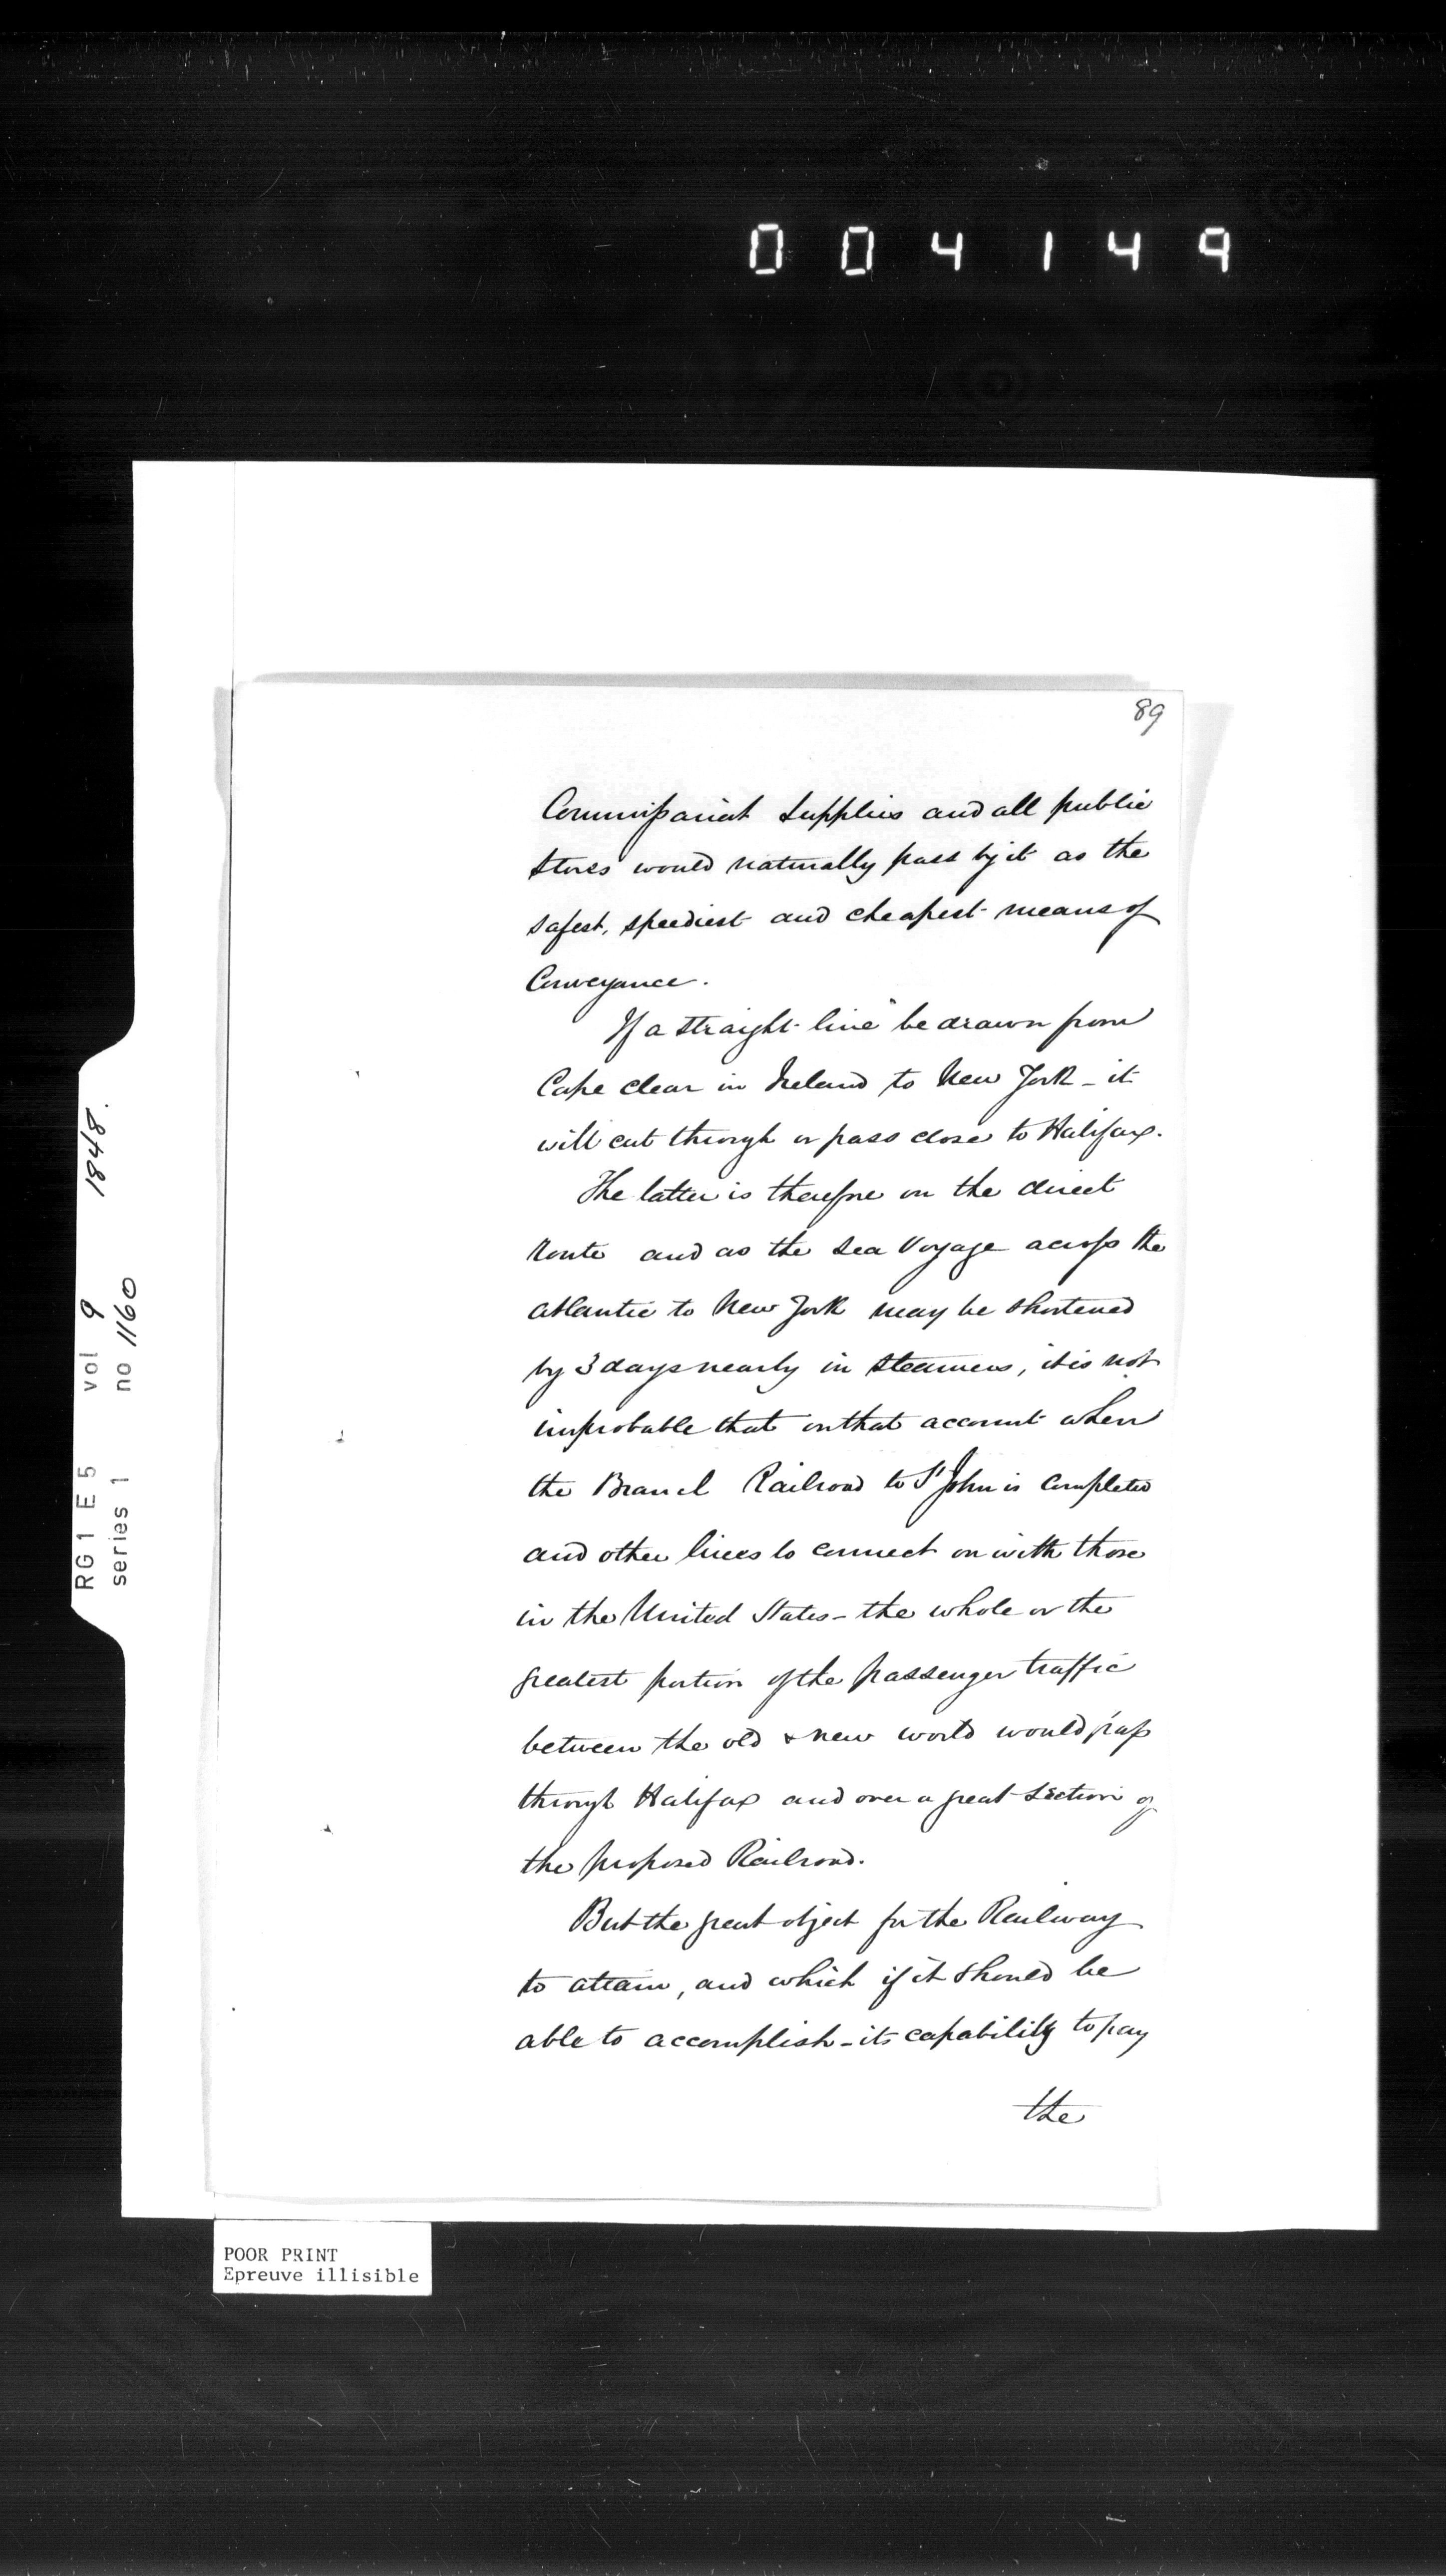 004149
89
Commissariat Supplies and all public
Stores would naturally pass by it as the
safest, speediest and cheapest means of
Conveyance.
If a straight line be drawn from
Cape Clear in Ireland to New York - it
will cut through or pass close to Halifax.
The latter is therefore on the direct
route and as the Sea Voyage across the
atlantic to New York may be shortened
by 3 days nearly in steamers, it is not
improbable that on that account when
the Branch Railroad to St John is completed
and other lines to connect on with those
in the United States - the whole or the
greatest portion of the passenger traffic
between the old & new world would pass
through Halifax and over a great section of
the proposed Railroad.
But the great object for the Railway
to attain, and which if it should be
able to accomplish - its capability to pay
the
RG 1 E 5 vol 9 1848.
series 1 no 1160
POOR PRINT
Epreuve illisible